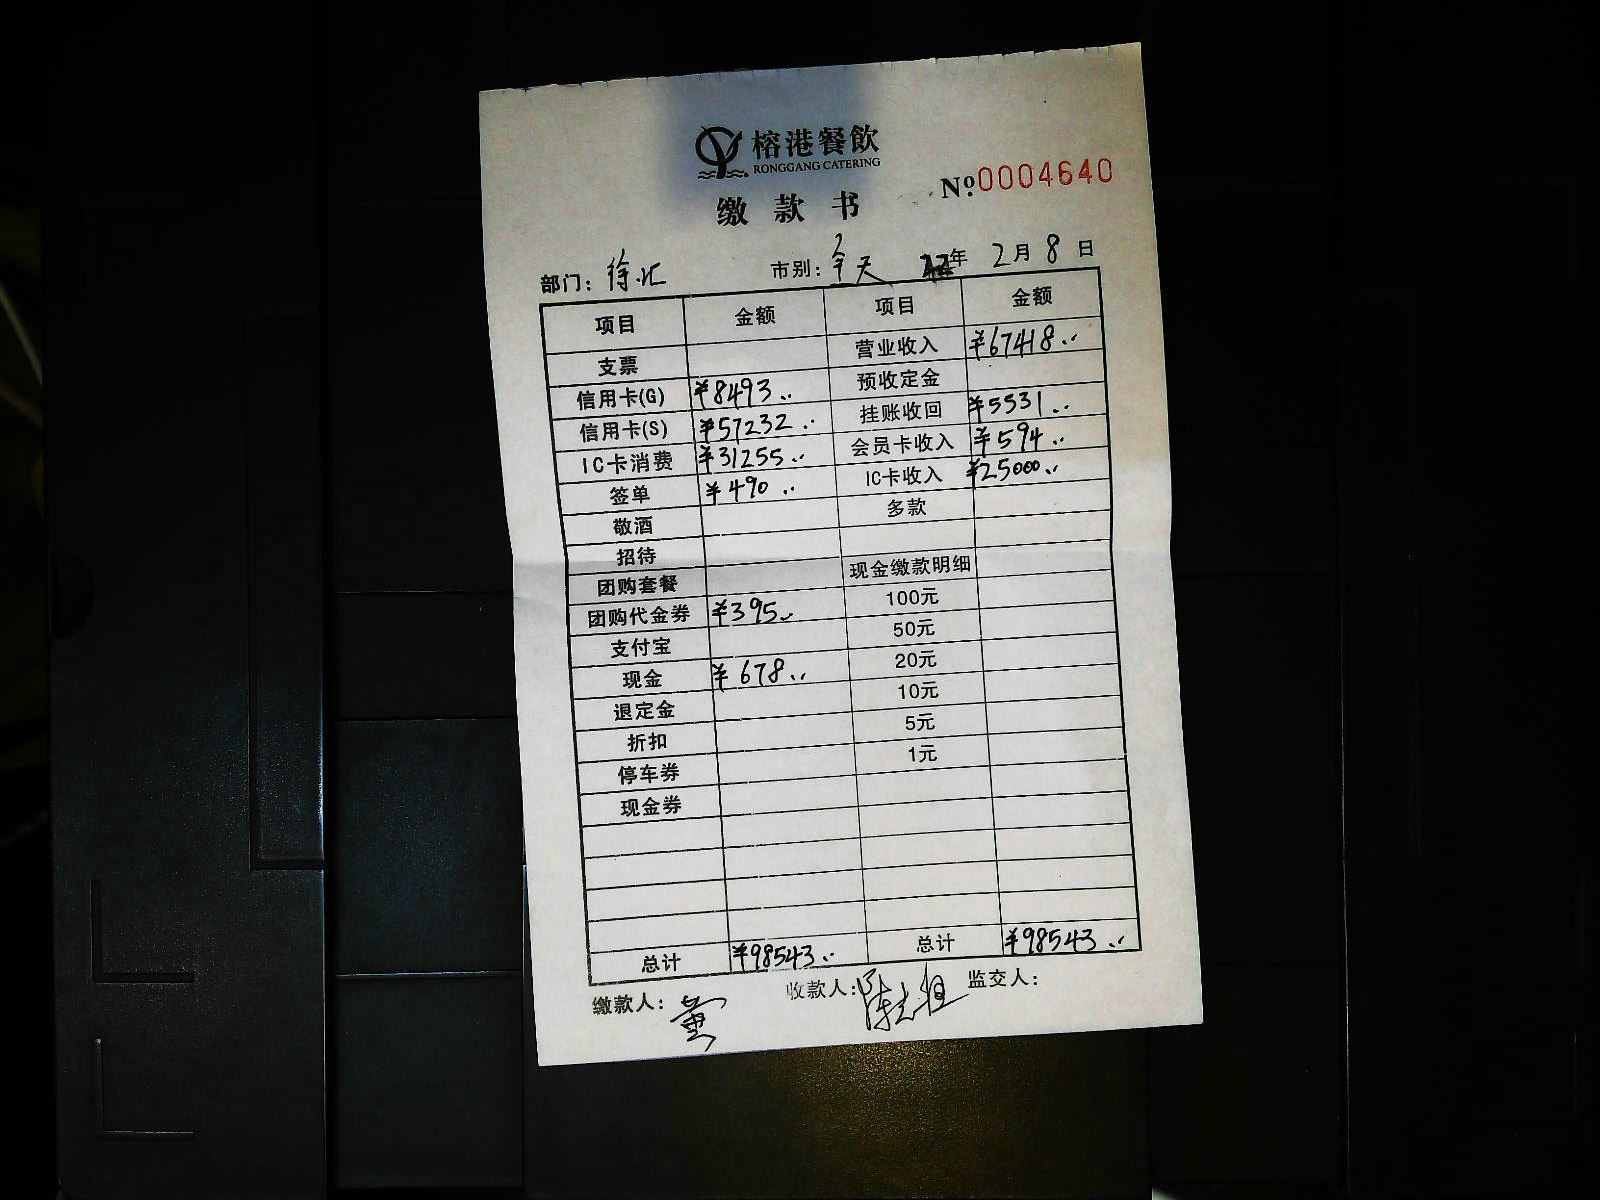 榕港餐飲
RONGGANG CATERING
缴款书
№ 0004640
部门：徐汇 市别：全天 年 2月8日
项目 金额 项目 金额
支票 营业收入 ¥67418..
信用卡(G) ¥8493.. 预收定金
信用卡(S) ¥57232.. 挂账收回 ¥5531..
IC卡消费 ¥31255.. 会员卡收入 ¥594..
签单 ¥490.. IC卡收入 ¥25000..
敬酒 多款
招待
团购套餐 现金缴款明细
团购代金券 ¥395.. 100元
支付宝 50元
现金 ¥678.. 20元
退定金 10元
折扣 5元
停车券 1元
现金券
总计 ¥98543.. 总计 ¥98543..
缴款人：黄 收款人： 监交人：